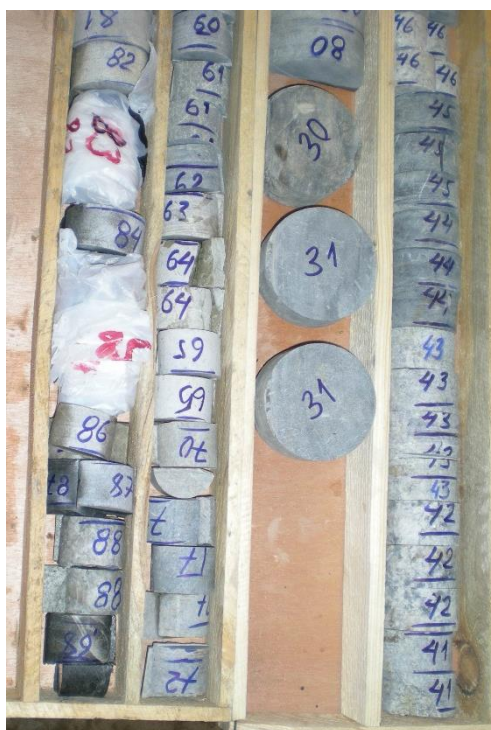 81
82
83
84
85
86
87
87
88
88
89
60
61
61
62
63
64
64
65
65
70
7
71
72
80
30
31
31
46 46
46 46
45
45
45
44
44
44
43
43
43
43
43
42
42
42
41
41